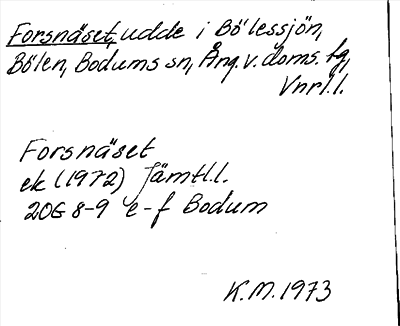 Forsnäset, udde i Bölessjön,
Bölen, Bodums sn, Ång. v. doms. tg,
Vnrl.l.
Forsnäset
ek (1972) Jämtl.l.
20G 8-9 e-f Bodum
K.M. 1973